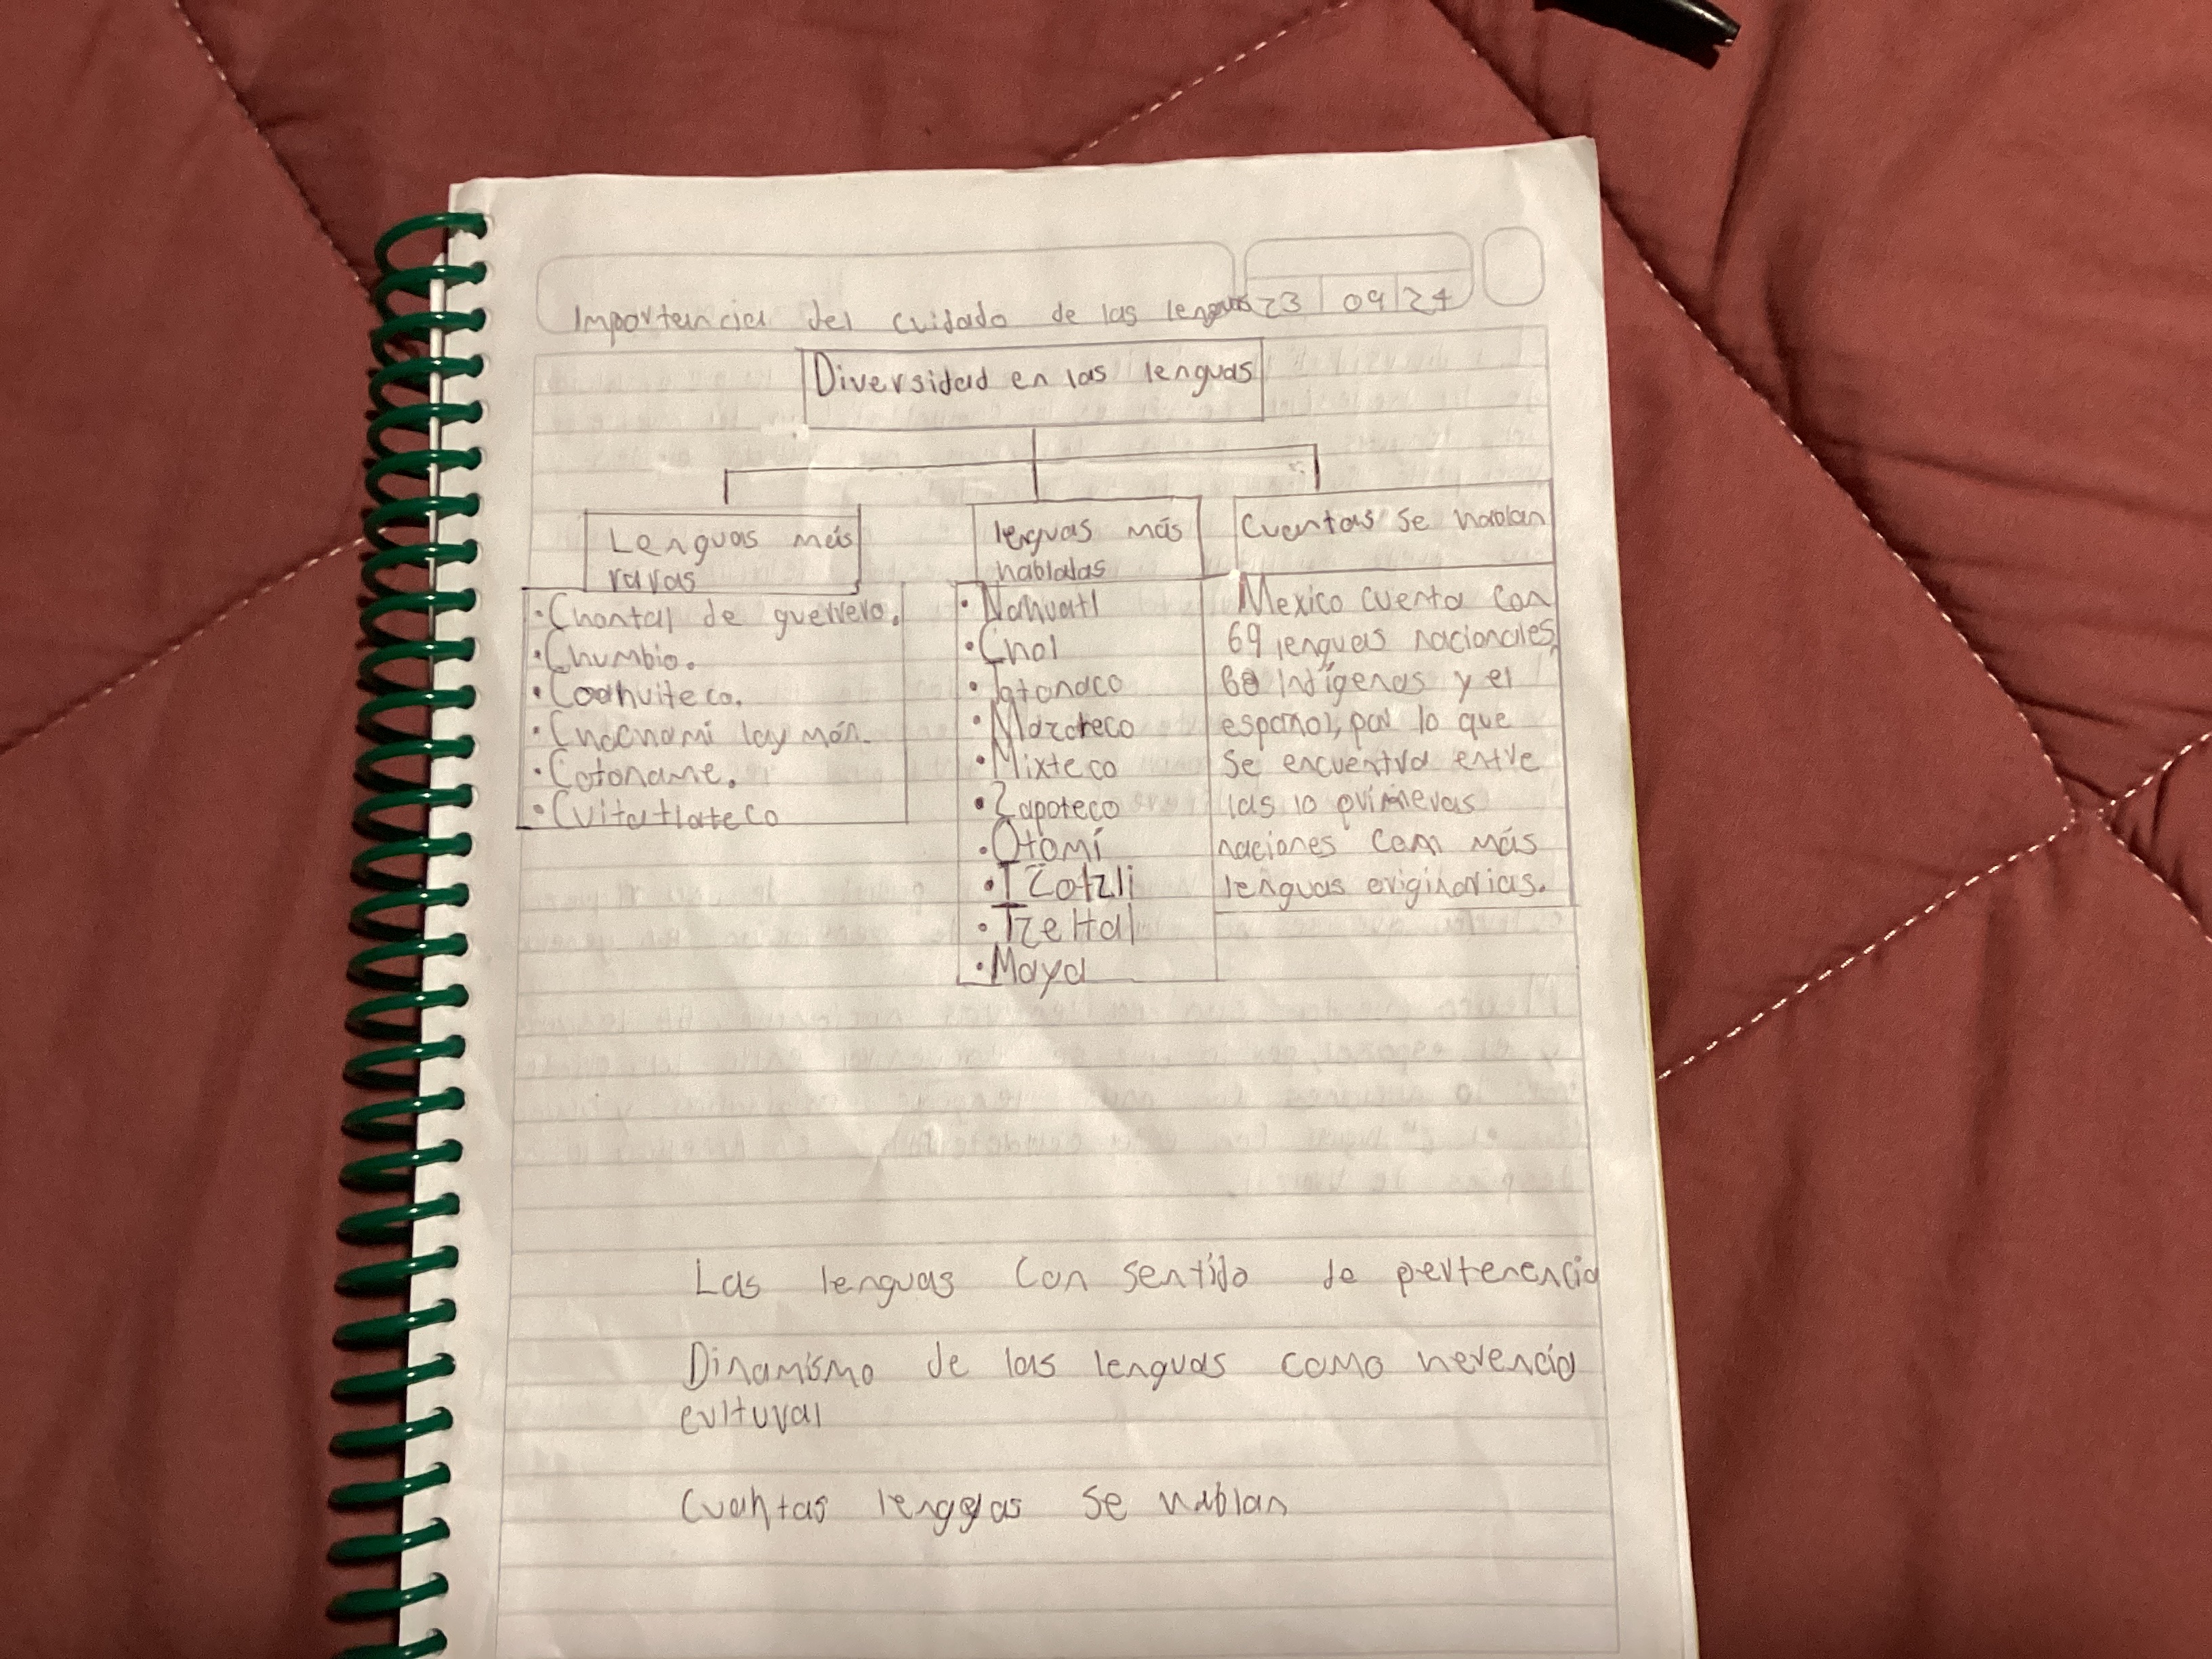 Importancia del cuidado de las lenguas 23 09 24
Diversidad en las lenguas
Lenguas más
raras
· Chontal de guerrero.
· Chumbio.
· Coahuiteco.
· Chochomi lay món.
· Cotoname.
· Cuitatlateco
lenguas más
habladas
· Nahuatl
· Chol
· Totonaco
· Mazateco
· Mixteco
· Zapoteco
· Otomí
· Tzotzli
· Tzeltal
· Maya
Cuentas se hablan
Mexico cuenta con
69 lenguas nacionales,
68 Indígenas y el
español, por lo que
se encuentra entre
las 10 primeras
naciones com más
lenguas originarias.
Las lenguas Con sentido de pertenencia
Dinamísmo de las lenguas como herencia
cultural
Cuantas lenguas se hablan